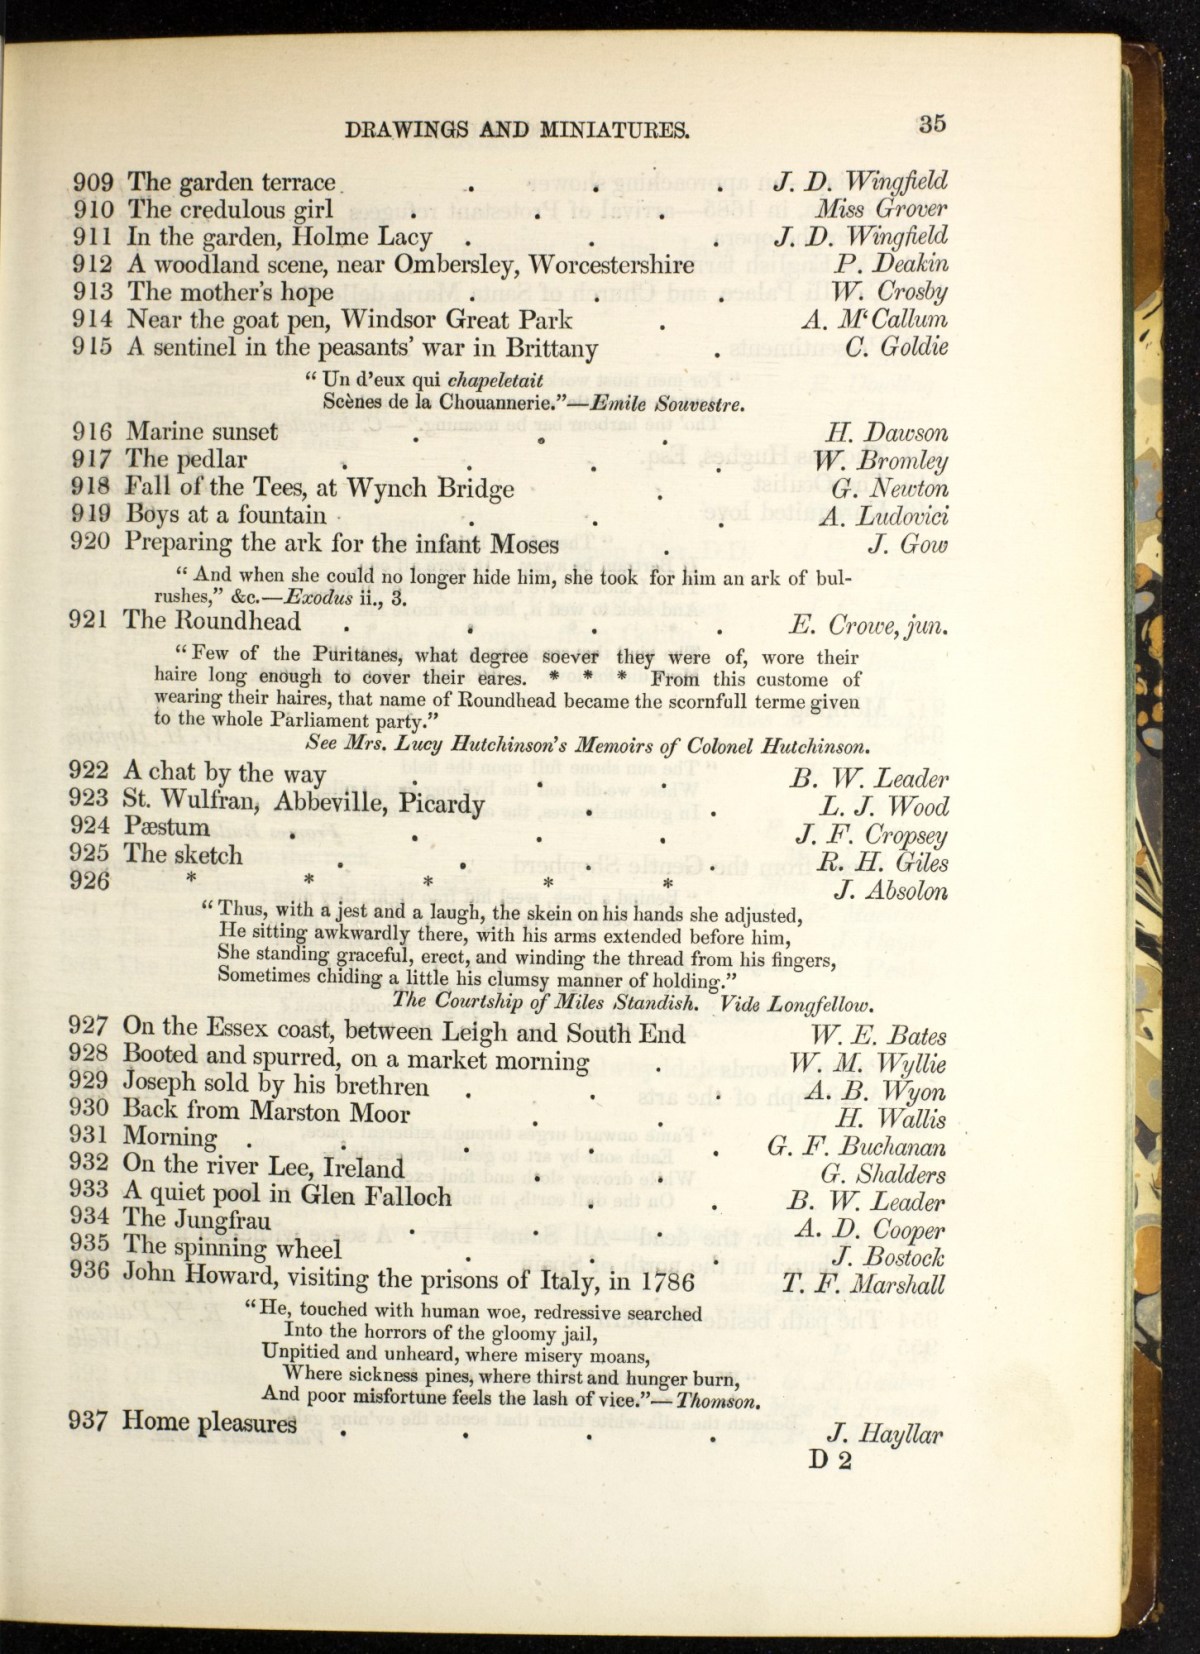 DRAWINGS AND MINIATURES. 35
909 The garden terrace . . . J. D. Wingfield
910 The credulous girl . . . Miss Grover
911 In the garden, Holme Lacy . . . J. D. Wingfield
912 A woodland scene, near Ombersley, Worcestershire P. Deakin
913 The mother's hope . . . W. Crosby
914 Near the goat pen, Windsor Great Park . A. M‘Callum
915 A sentinel in the peasants' war in Brittany . C. Goldie
“Un d'eux qui chapeletait
Scènes de la Chouannerie.”—Emile Souvestre.
916 Marine sunset . . . H. Dawson
917 The pedlar . . . . W. Bromley
918 Fall of the Tees, at Wynch Bridge . G. Newton
919 Boys at a fountain . . . A. Ludovici
920 Preparing the ark for the infant Moses . J. Gow
“And when she could no longer hide him, she took for him an ark of bul-
rushes,” &c.—Exodus ii., 3.
921 The Roundhead . . . . E. Crowe, jun.
“Few of the Puritanes, what degree soever they were of, wore their
haire long enough to cover their eares. * * * From this custome of
wearing their haires, that name of Roundhead became the scornfull terme given
to the whole Parliament party.”
See Mrs. Lucy Hutchinson's Memoirs of Colonel Hutchinson.
922 A chat by the way . . . B. W. Leader
923 St. Wulfran, Abbeville, Picardy . . L. J. Wood
924 Pæstum . . . . J. F. Cropsey
925 The sketch . . . . R. H. Giles
926 * * * * * J. Absolon
“Thus, with a jest and a laugh, the skein on his hands she adjusted,
He sitting awkwardly there, with his arms extended before him,
She standing graceful, erect, and winding the thread from his fingers,
Sometimes chiding a little his clumsy manner of holding.”
The Courtship of Miles Standish. Vide Longfellow.
927 On the Essex coast, between Leigh and South End W. E. Bates
928 Booted and spurred, on a market morning . W. M. Wyllie
929 Joseph sold by his brethren . . . A. B. Wyon
930 Back from Marston Moor . . H. Wallis
931 Morning . . . . . G. F. Buchanan
932 On the river Lee, Ireland . . G. Shalders
933 A quiet pool in Glen Falloch . . B. W. Leader
934 The Jungfrau . . . A. D. Cooper
935 The spinning wheel . . . J. Bostock
936 John Howard, visiting the prisons of Italy, in 1786 T. F. Marshall
“He, touched with human woe, redressive searched
Into the horrors of the gloomy jail,
Unpitied and unheard, where misery moans,
Where sickness pines, where thirst and hunger burn,
And poor misfortune feels the lash of vice.”—Thomson.
937 Home pleasures . . . . J. Hayllar
D 2